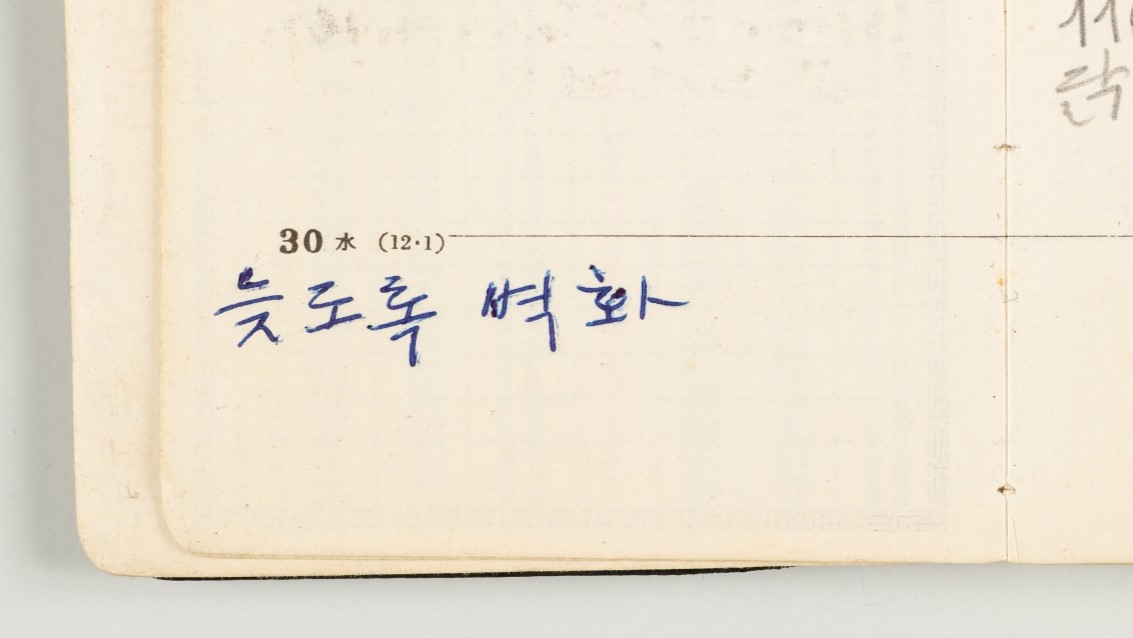 30 水 (12·1)
늦도록 벽화